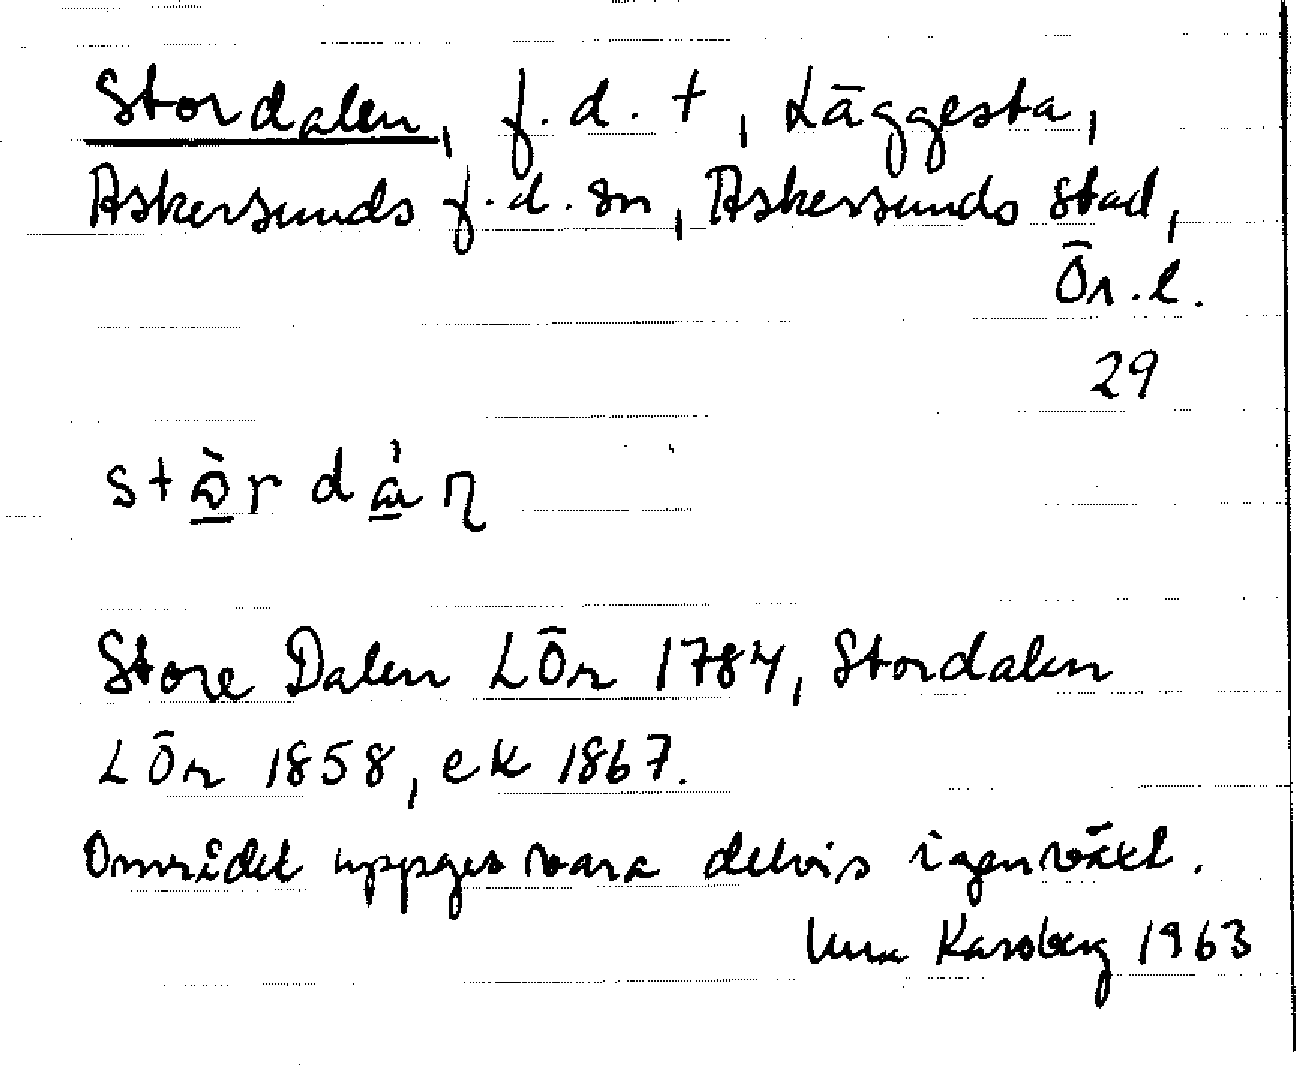 Stordalen, f.d. t, Läggesta,
Askersunds f.d. sn, Askersunds stad,
Ör.l.
29
Store Dalen LÖr 1784, Stordalen
LÖr 1858, ek 1867.
Området uppges vara delvis igenväxt.
Karsberg 1963